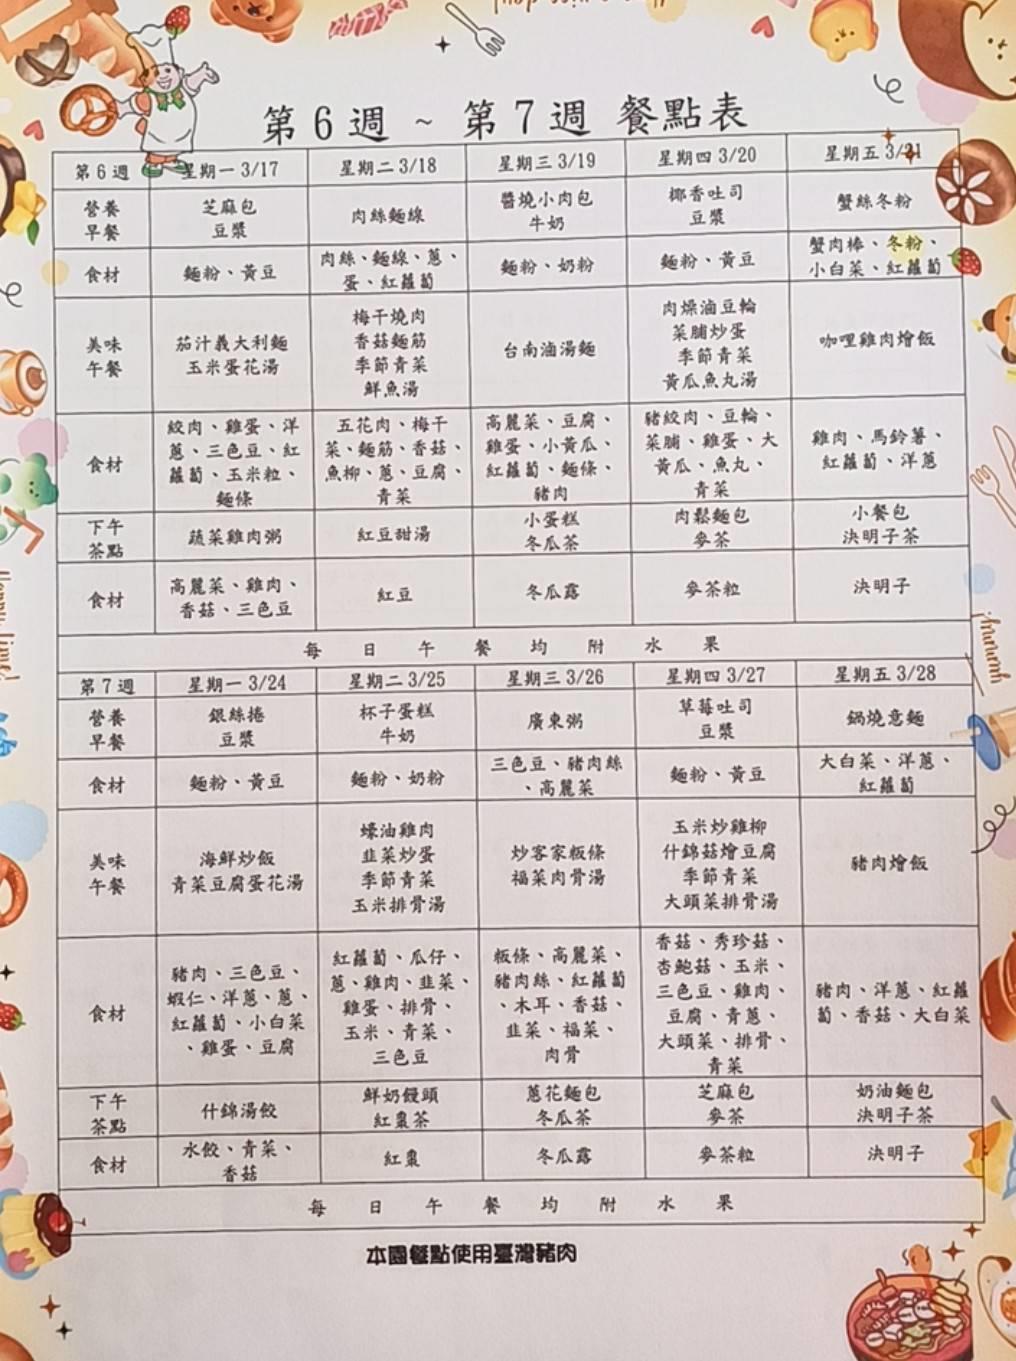 第6週 ~ 第7週 餐點表
第6週 星期一 3/17 星期二 3/18 星期三 3/19 星期四 3/20 星期五 3/21
營養早餐
芝麻包
豆漿
肉絲麵線
醬燒小肉包
牛奶
椰香吐司
豆漿
蟹絲冬粉
食材
麵粉、黃豆
肉絲、麵線、蔥、
蛋、紅蘿蔔
麵粉、奶粉
麵粉、黃豆
蟹肉棒、冬粉、
小白菜、紅蘿蔔
美味
午餐
茄汁義大利麵
玉米蛋花湯
梅干燒肉
香菇麵筋
季節青菜
鮮魚湯
台南滷湯麵
肉燥滷豆輪
菜脯炒蛋
季節青菜
黃瓜魚丸湯
咖哩雞肉燴飯
食材
絞肉、雞蛋、洋
蔥、三色豆、紅
蘿蔔、玉米粒、
麵條
五花肉、梅干
菜、麵筋、香菇、
魚柳、蔥、豆腐、
青菜
高麗菜、豆腐、
雞蛋、小黃瓜、
紅蘿蔔、麵條、
豬肉
豬絞肉、豆輪、
菜脯、雞蛋、大
黃瓜、魚丸、
青菜
雞肉、馬鈴薯、
紅蘿蔔、洋蔥
下午
茶點
蔬菜雞肉粥
紅豆甜湯
小蛋糕
冬瓜茶
肉鬆麵包
麥茶
小餐包
決明子茶
食材
高麗菜、雞肉、
香菇、三色豆
紅豆
冬瓜露
麥茶粒
決明子
每日午餐均附水果
第7週 星期一 3/24 星期二 3/25 星期三 3/26 星期四 3/27 星期五 3/28
營養
早餐
銀絲捲
豆漿
杯子蛋糕
牛奶
廣東粥
草莓吐司
豆漿
鍋燒意麵
食材
麵粉、黃豆
麵粉、奶粉
三色豆、豬肉絲
、高麗菜
麵粉、黃豆
大白菜、洋蔥、
紅蘿蔔
美味
午餐
海鮮炒飯
青菜豆腐蛋花湯
蠔油雞肉
韭菜炒蛋
季節青菜
玉米排骨湯
炒客家粄條
福菜肉骨湯
玉米炒雞柳
什錦菇燴豆腐
季節青菜
大頭菜排骨湯
豬肉燴飯
食材
豬肉、三色豆、
蝦仁、洋蔥、蔥、
紅蘿蔔、小白菜
、雞蛋、豆腐
紅蘿蔔、瓜仔、
蔥、雞肉、韭菜、
雞蛋、排骨、
玉米、青菜、
三色豆
粄條、高麗菜、
豬肉絲、紅蘿蔔
、木耳、香菇、
韭菜、福菜、
肉骨
香菇、秀珍菇、
杏鮑菇、玉米、
三色豆、雞肉、
豆腐、青蔥、
大頭菜、排骨、
青菜
豬肉、洋蔥、紅蘿
蔔、香菇、大白菜
下午
茶點
什錦湯餃
鮮奶饅頭
紅棗茶
蔥花麵包
冬瓜茶
芝麻包
麥茶
奶油麵包
決明子茶
食材
水餃、青菜、
香菇
紅棗
冬瓜露
麥茶粒
決明子
每日午餐均附水果
本園餐點使用臺灣豬肉